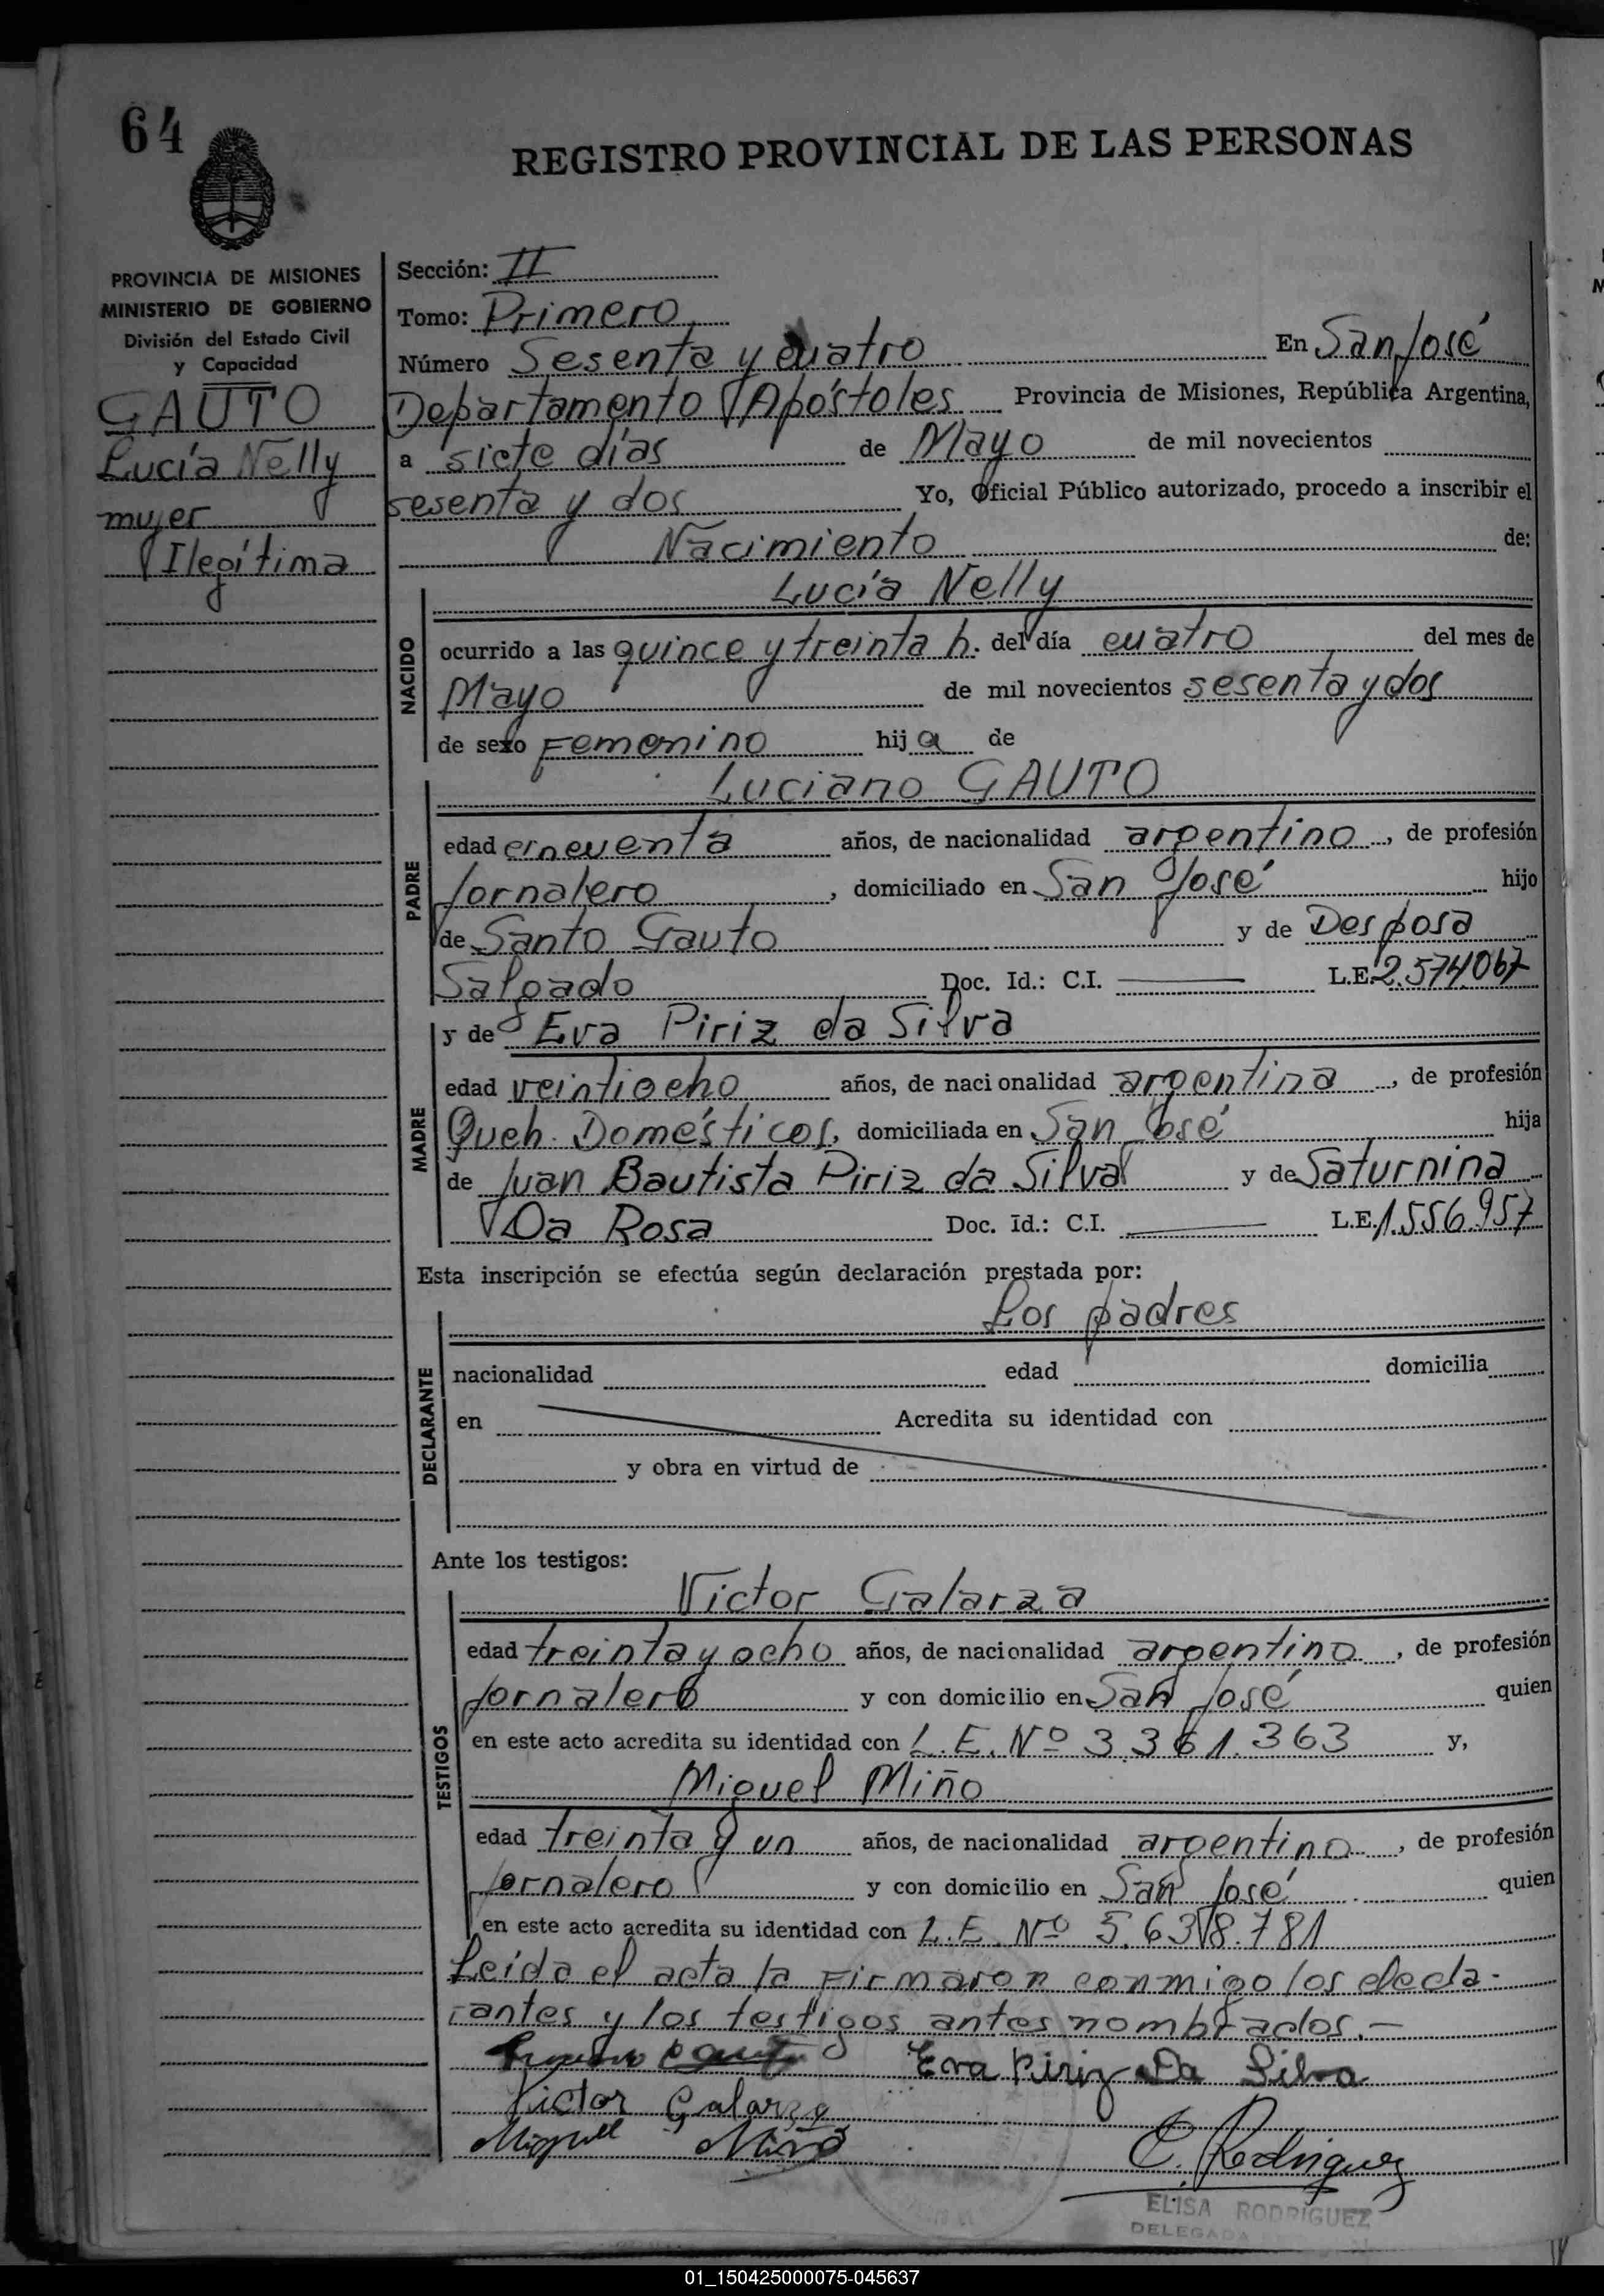 64
REGISTRO PROVINCIAL DE LAS PERSONAS
PROVINCIA DE MISIONES
MINISTERIO DE GOBIERNO
División del Estado Civil
y Capacidad
GAUTO
Lucía Nelly
mujer
Ilegítima
Sección: II
Tomo: Primero
Número Sesenta y cuatro En San José
Departamento Apóstoles Provincia de Misiones, República Argentina,
a siete días de Mayo de mil novecientos
sesenta y dos Yo, Oficial Público autorizado, procedo a inscribir el
Nacimiento de:
NACIDO
Lucía Nelly
ocurrido a las quince y treinta h. del día cuatro del mes de
Mayo de mil novecientos sesenta y dos
de sexo Femenino hija de
PADRE
Luciano GAUTO
edad cincuenta años, de nacionalidad argentino, de profesión
Jornalero, domiciliado en San José hijo
de Santo Gauto y de Desposa
Salgado Doc. Id.: C.I. L.E. 2.574.067
MADRE
y de Eva Piriz da Silva
edad veintiocho años, de nacionalidad argentina, de profesión
Queh. Domésticos, domiciliada en San José hija
de Juan Bautista Piriz da Silva y de Saturnina
Da Rosa Doc. Id.: C.I. L.E. 1.556.957
Esta inscripción se efectúa según declaración prestada por:
DECLARANTE
Los padres
nacionalidad edad domicilia
en Acredita su identidad con
y obra en virtud de
Ante los testigos:
TESTIGOS
Victor Galarza
edad treinta y ocho años, de nacionalidad argentino, de profesión
Jornalero y con domicilio en San José quien
en este acto acredita su identidad con L.E. Nº 3.361.363 y,
Miguel Miño
edad treinta y un años, de nacionalidad argentino, de profesión
Jornalero y con domicilio en San José quien
en este acto acredita su identidad con L.E. Nº 5.638.781
Leída el acta la firmaron conmigo los decla-
rantes y los testigos antes nombrados.-
Eva Piriz Da Silva
Victor Galarza
Miguel Miño
E. Rodriguez
ELISA RODRIGUEZ
DELEGADA
01_150425000075-045637